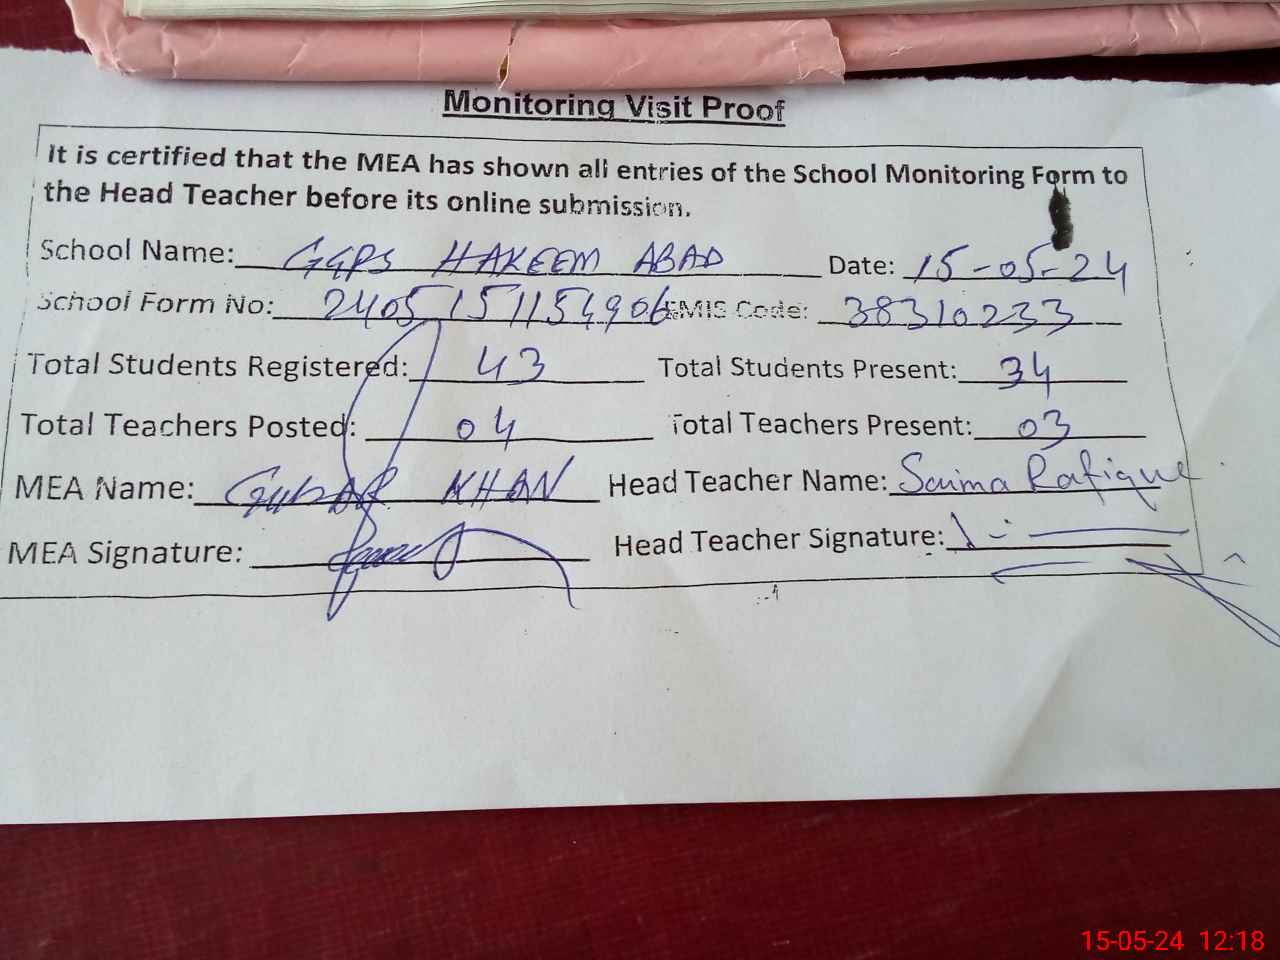 Monitoring Visit Proof
It is certified that the MEA has shown all entries of the School Monitoring Form to
the Head Teacher before its online submission.
School Name: GGPS HAKEEM ABAD Date: 15-05-24
School Form No: 2405151154906 EMIS Code: 38310233
Total Students Registered: 43 Total Students Present: 34
Total Teachers Posted: 04 Total Teachers Present: 03
MEA Name: KHAN Head Teacher Name: Saima Rafique
MEA Signature: Head Teacher Signature:
15-05-24 12:18